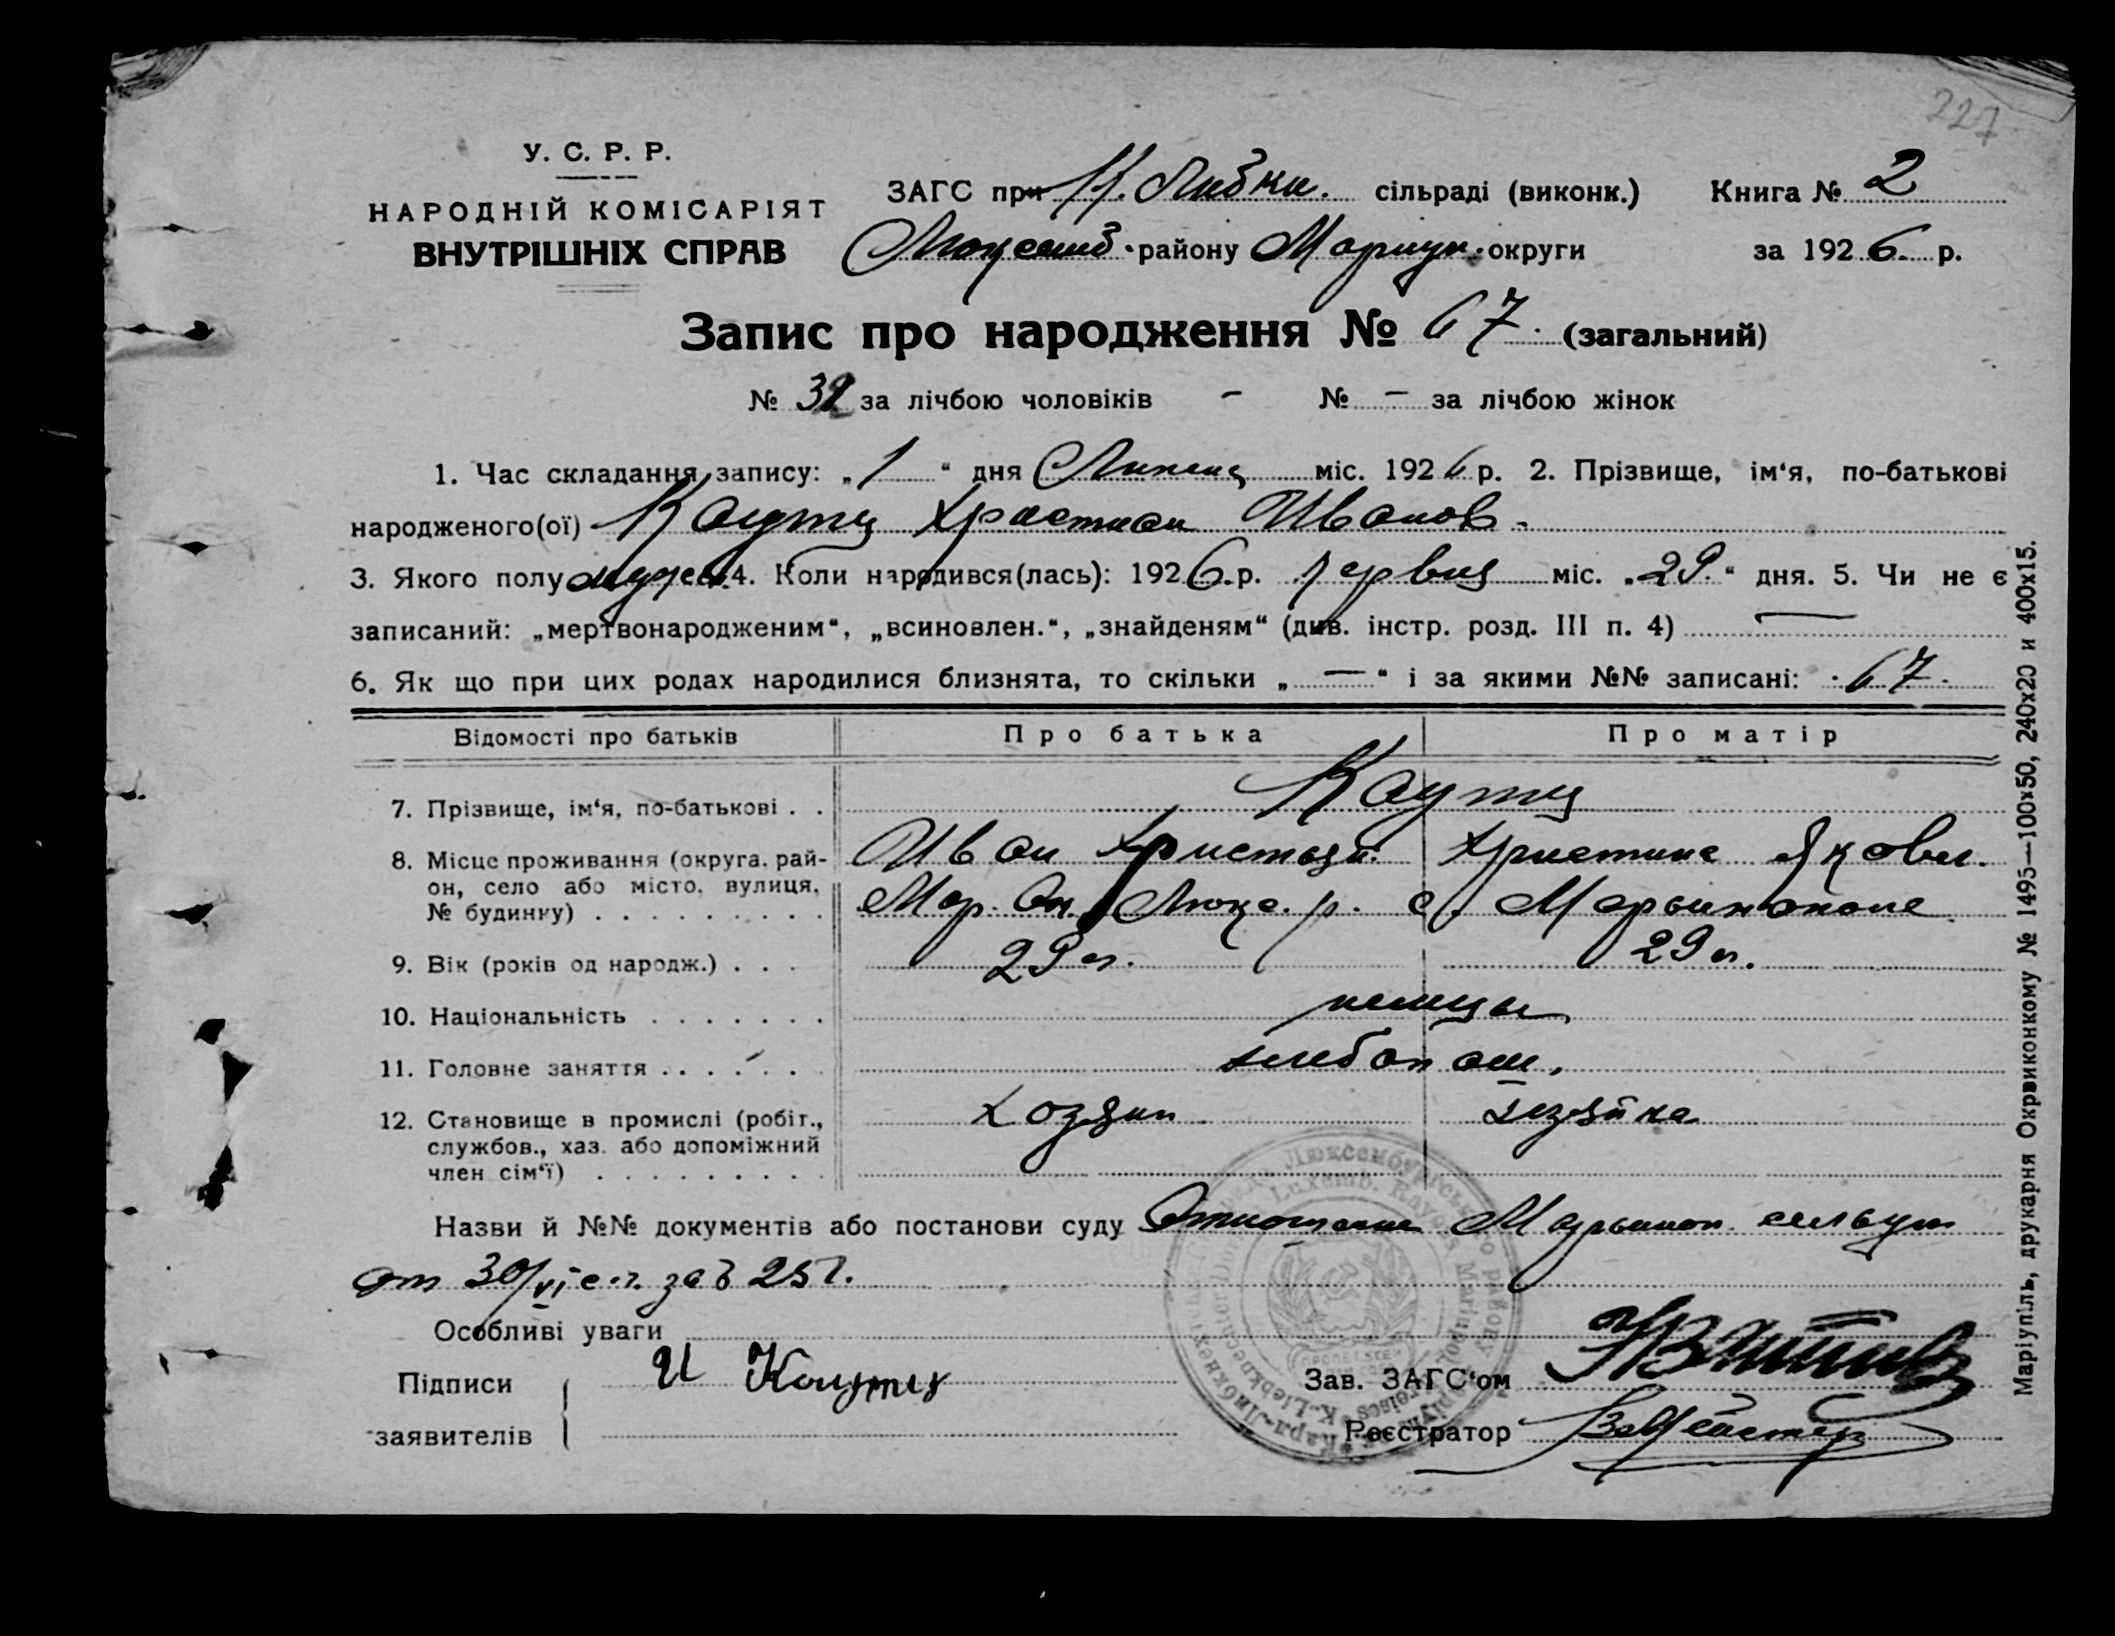 227
У. С. Р. Р.
НАРОДНІЙ КОМІСАРІЯТ
ВНУТРІШНІХ СПРАВ
ЗАГС при К. Либкн. сільраді (виконк.) Книга № 2
Люксемб. району Мариуп. округи за 1926 р.
Запис про народження № 67. (загальний)
№ 32 за лічбою чоловіків – № – за лічбою жінок
1. Час складання запису: „1“ дня Липень міс. 1926 р. 2. Прізвище, ім‘я, по-батькові
народженого(ої) Каутц Християн Иванов.
3. Якого полу мужеск. 4. Коли народився(лась): 1926. р. червц міс. „29.“ дня. 5. Чи не є
записаний: „мертвонародженим“, „всиновлен.“, „знайденям“ (див. інстр. розд. III п. 4) —
6. Як що при цих родах народилися близнята, то скільки „—“ і за якими №№ записані: 67.
Відомості про батьків Про батька Про матір
7. Прізвище, ім‘я, по-батькові . . Каутц
Иван Христиан. Христина Яковл.
8. Місце проживання (округа, рай-
он, село або місто, вулиця,
№ будинку) . . . . . . . . . Мар. Ок. Люкс. р. с. Марьинополе
9. Вік (років од народж.) . . . 29 л. 29 л.
10. Національність . . . . . . . немцы
11. Головне заняття . . . . . . . хлебопаш.
12. Становище в промислі (робіт.,
службов., хаз. або допоміжний
член сім‘ї) . . . . . . . . . хозяин хозяйка
Назви й №№ документів або постанови суду Отношение Марьиноп. сельуп
от 30/VI с.г. за № 257.
Особливі уваги
Підписи
заявителів
И Каутц
Зав. ЗАГС‘ом
Реєстратор
Маріупіль, друкарня Окрвиконкому № 1495—100х50, 240х20 и 400х15.